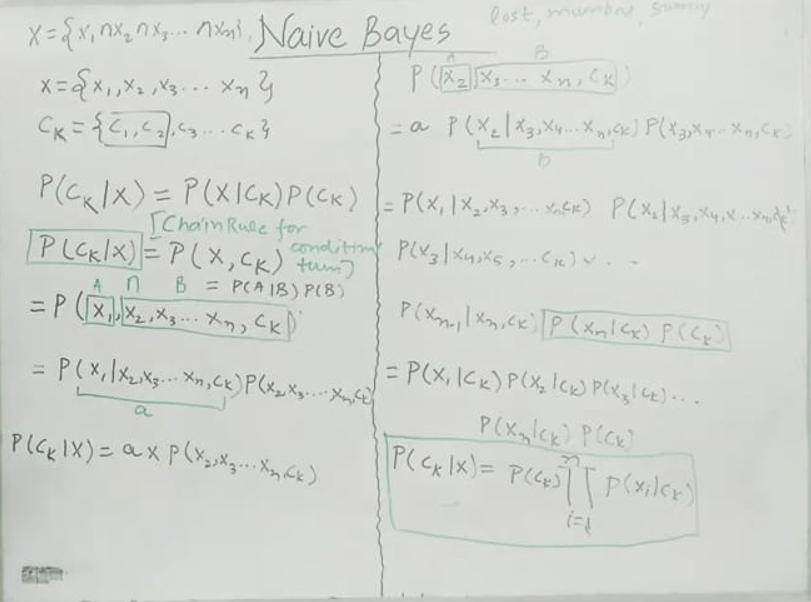 X = {x₁ ∩ x₂ ∩ x₃ ... ∩ xₙ}. Naive Bayes
lost, number, sunny
X = {x₁, x₂, x₃ ... xₙ}
Cₖ = {C₁, C₂, C₃ ... Cₖ}
P(Cₖ|X) = P(X|Cₖ) P(Cₖ)
[Chain Rule for condition
P(Cₖ|X) = P(X, Cₖ)
A ∩ B = P(A|B) P(B)
= P(x₁, x₂, x₃ ... xₙ, Cₖ)
= P(x₁|x₂, x₃ ... xₙ, Cₖ) P(x₂, x₃ .... xₙ, Cₖ)
a
P(Cₖ|X) = a x P(x₂, x₃ ... xₙ, Cₖ)
A B
P(x₂, x₃ ... xₙ, Cₖ)
= a P(x₂|x₃, x₄ ... xₙ, Cₖ) P(x₃, x₄ ... xₙ, Cₖ)
b
= P(x₁|x₂, x₃, ... xₙ Cₖ) P(x₂|x₃, x₄, x ... xₙ, Cₖ)
P(x₃|x₄, x₅, ... Cₖ) . .
P(xₙ₋₁|xₙ, Cₖ) P(xₙ|Cₖ) P(Cₖ)
= P(x₁|Cₖ) P(x₂|Cₖ) P(x₃|Cₖ) ...
P(xₙ|Cₖ) P(Cₖ)
P(Cₖ|X) = P(Cₖ) ∏ⁿᵢ₌₁ P(xᵢ|Cₖ)